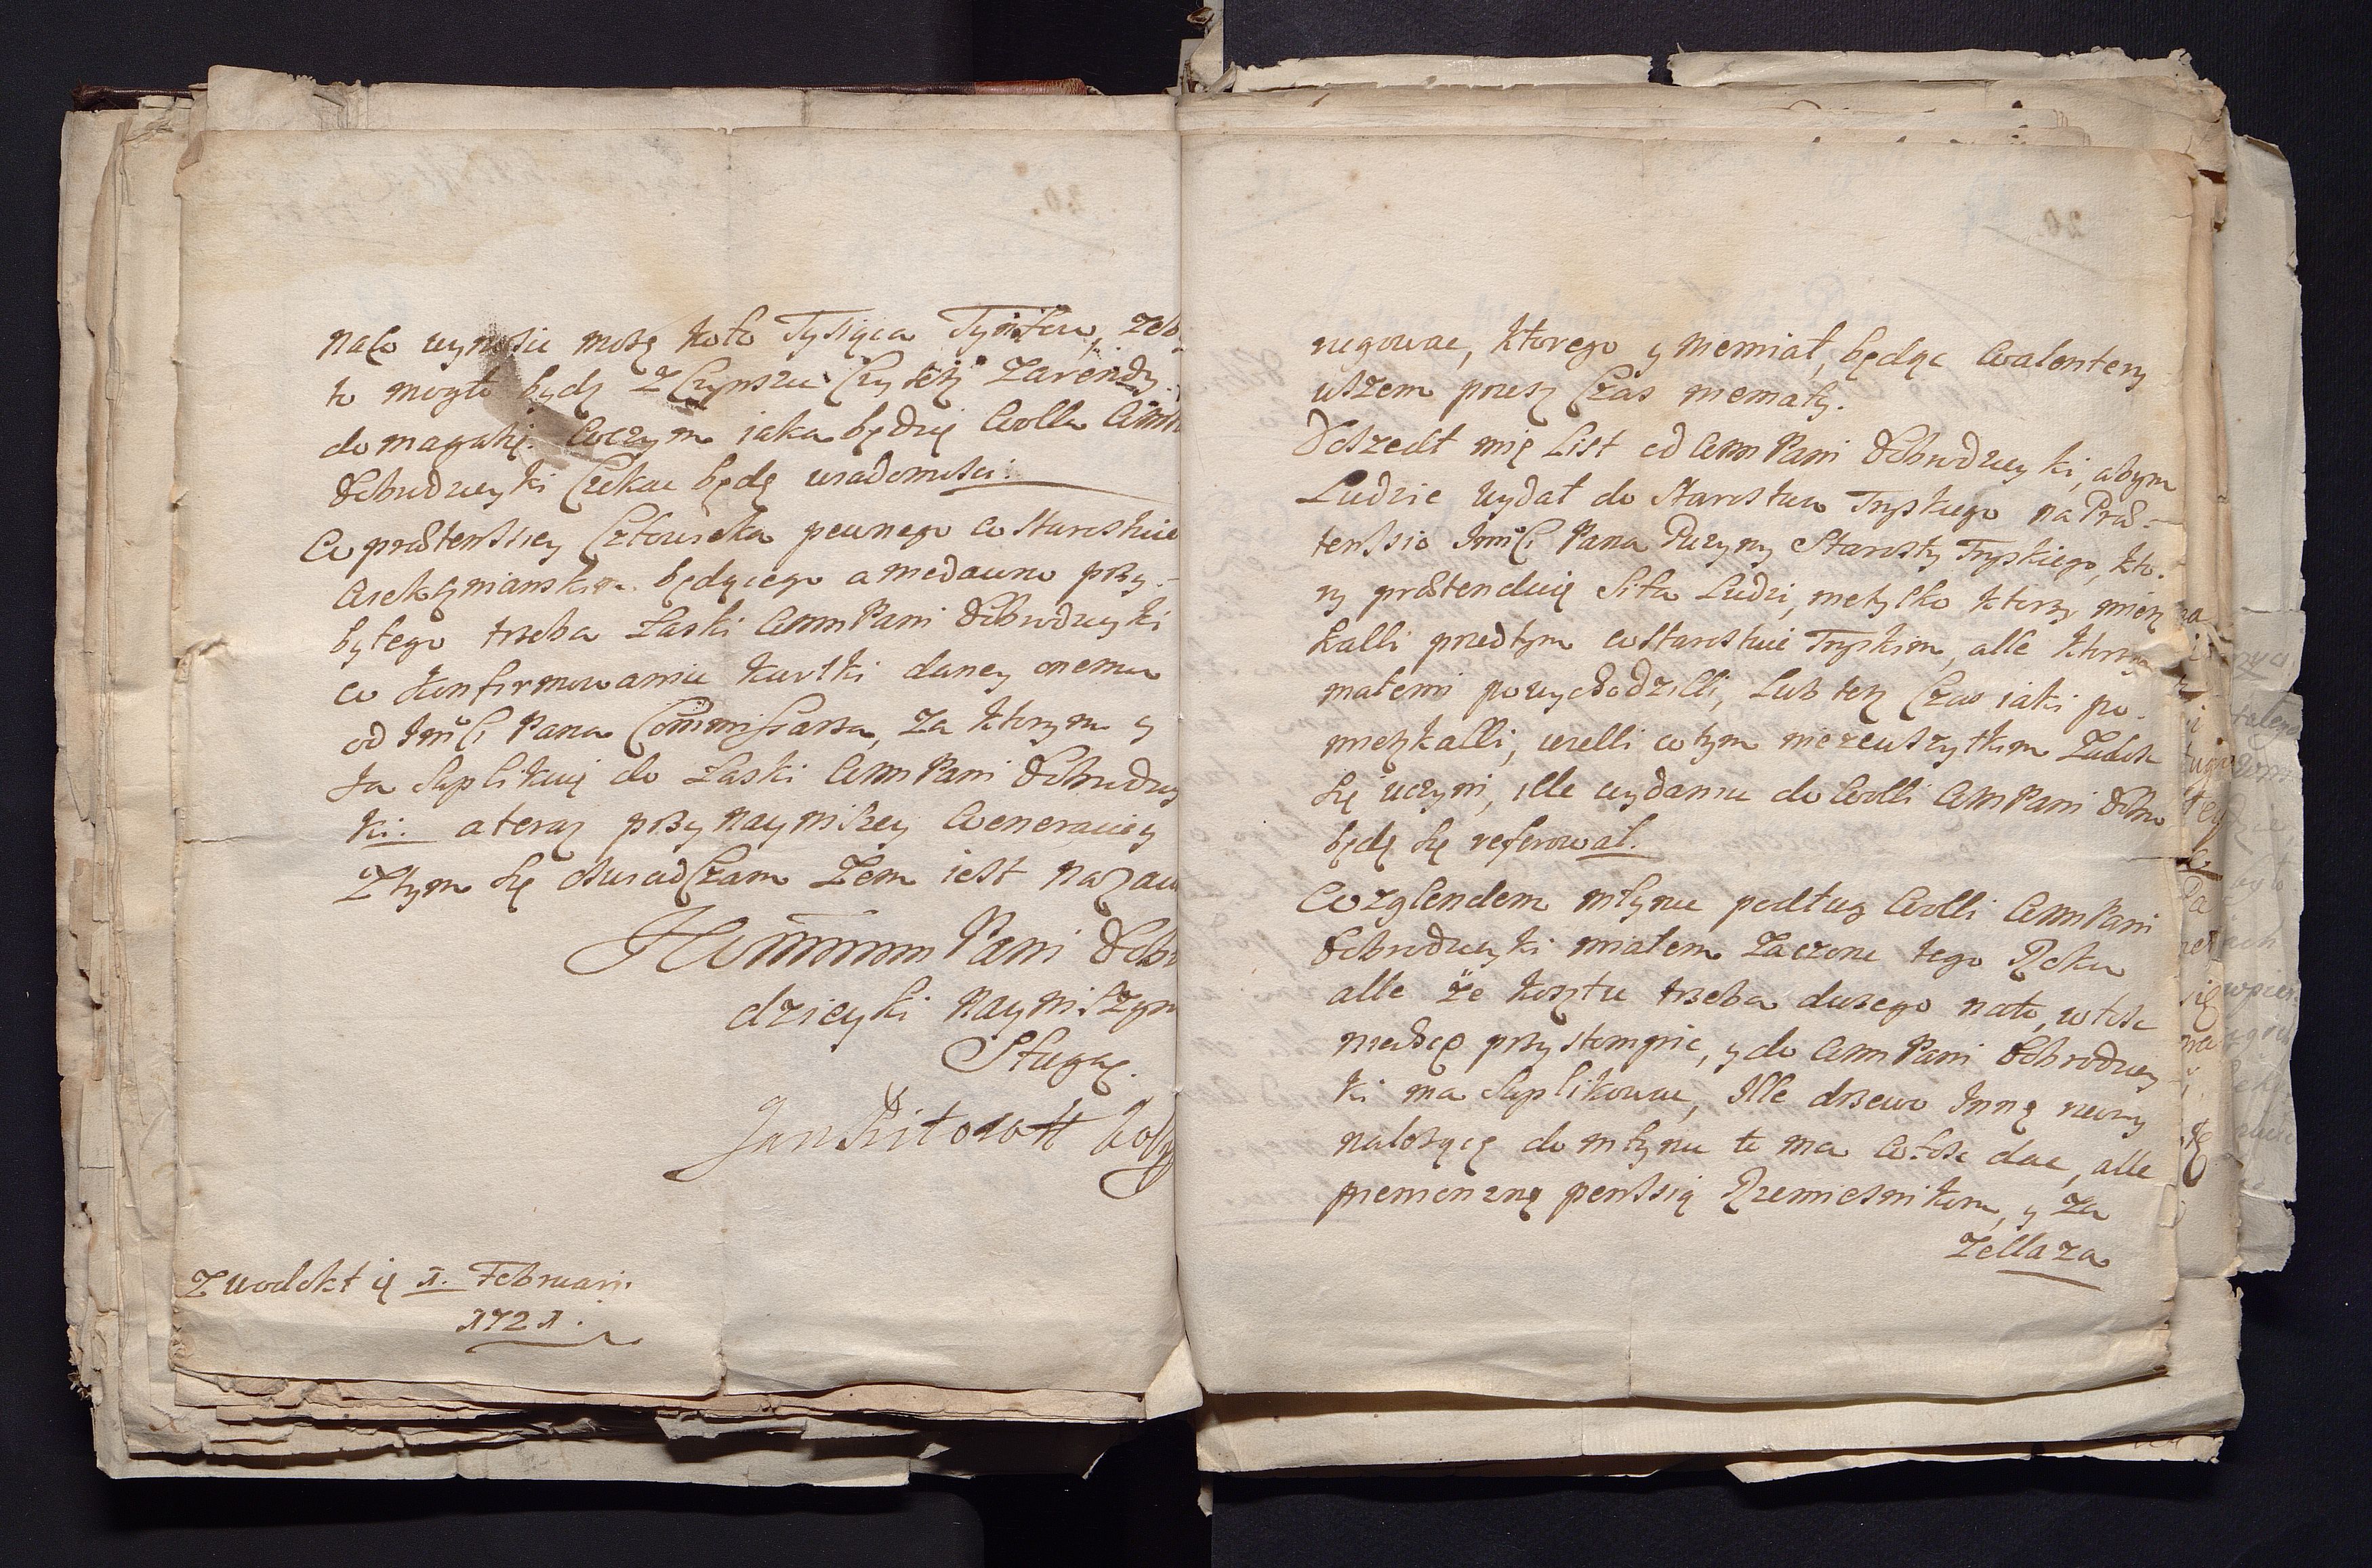 naco wynosic mozę koło Tysiąca Tynfow, zeb
to mogło bydz z Czynszu Czy tesz Zarendy
domagahę. Woczym iaka będzię Wolla WMM
Dobrodzieyki Czekac będę wiadomosci.
W prætenssiey Człowieka pewnego w Starostwie
Wieksznianskim będącego a niedawno przy-
byłego trzeba Łaski WMMPani Dobrodzieyki
w konfirmowaniu kartki daney onemu
od JmCi Pana Commissarza, za ktorym y
Ja Suplikuię do Łaski WMMPani Dobrodziey
ki. a teraz przy nayniszey Weneraciey
Ztym się oswiadCzam Zem iest nazaw
JWMMM Pani Dobr
dzieyki nayniszym
Sługą.
Jan
Zwodokt ię 1. Februarii
1721.
rugowac, ktorego y niemiał, będąc Walontery
uszem przesz Czas niemały.
Doszedł mię List od WMMPani Dobrodzieyki, abym
Ludzie wydał do Starostwa Tryskiego na Præ-
tenssio JmCi Pana Puzyny Starosty Tryskiego, kto-
ry prætenduię siła Ludzi, nietylko ktorzy miesz
kalli przedtym w Starostwie Tryskim, alle ktorzy
małemi powychodzilli, Lub tesz Czas iaki po-
mieszkalli, ieselli wtym niezewszytkim Zadosc
się uczyni, ille wydaniu do Wolli WMMPani Dobro
będę się referował.
Wzglendem młynu podług Wolli WMMPani
Dobrodzieyki miałem Zaczone tego Roku
alle że kosztu trzeba duzego nato, włosc
niechcę przystompic, y do WMM Pani Dobrodziey
ki ma Suplikowac, Ille drzewo Innę rzeczy
nalozącę do młynu to ma włosc dac, alle
pieniezną penssią Rzemiesnikom, y za
Zellaza